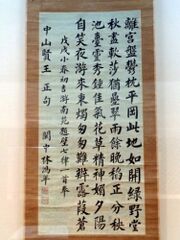 離宮盤鬱枕平岡此地如開綠野堂
秋盡軟莎猶疊翠雨餘晚稻正分秧
池臺靈秀鍾佳氣花草精神媚夕陽
自笑夜游來秉燭匆匆難辨露葭蒼
戊戌小春初吉游南苑題壁七律一首奉
中山賢王 正句 閩中林鴻年